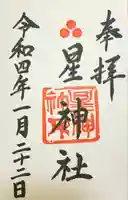 奉拝
星神社
令和四年一月二十二日